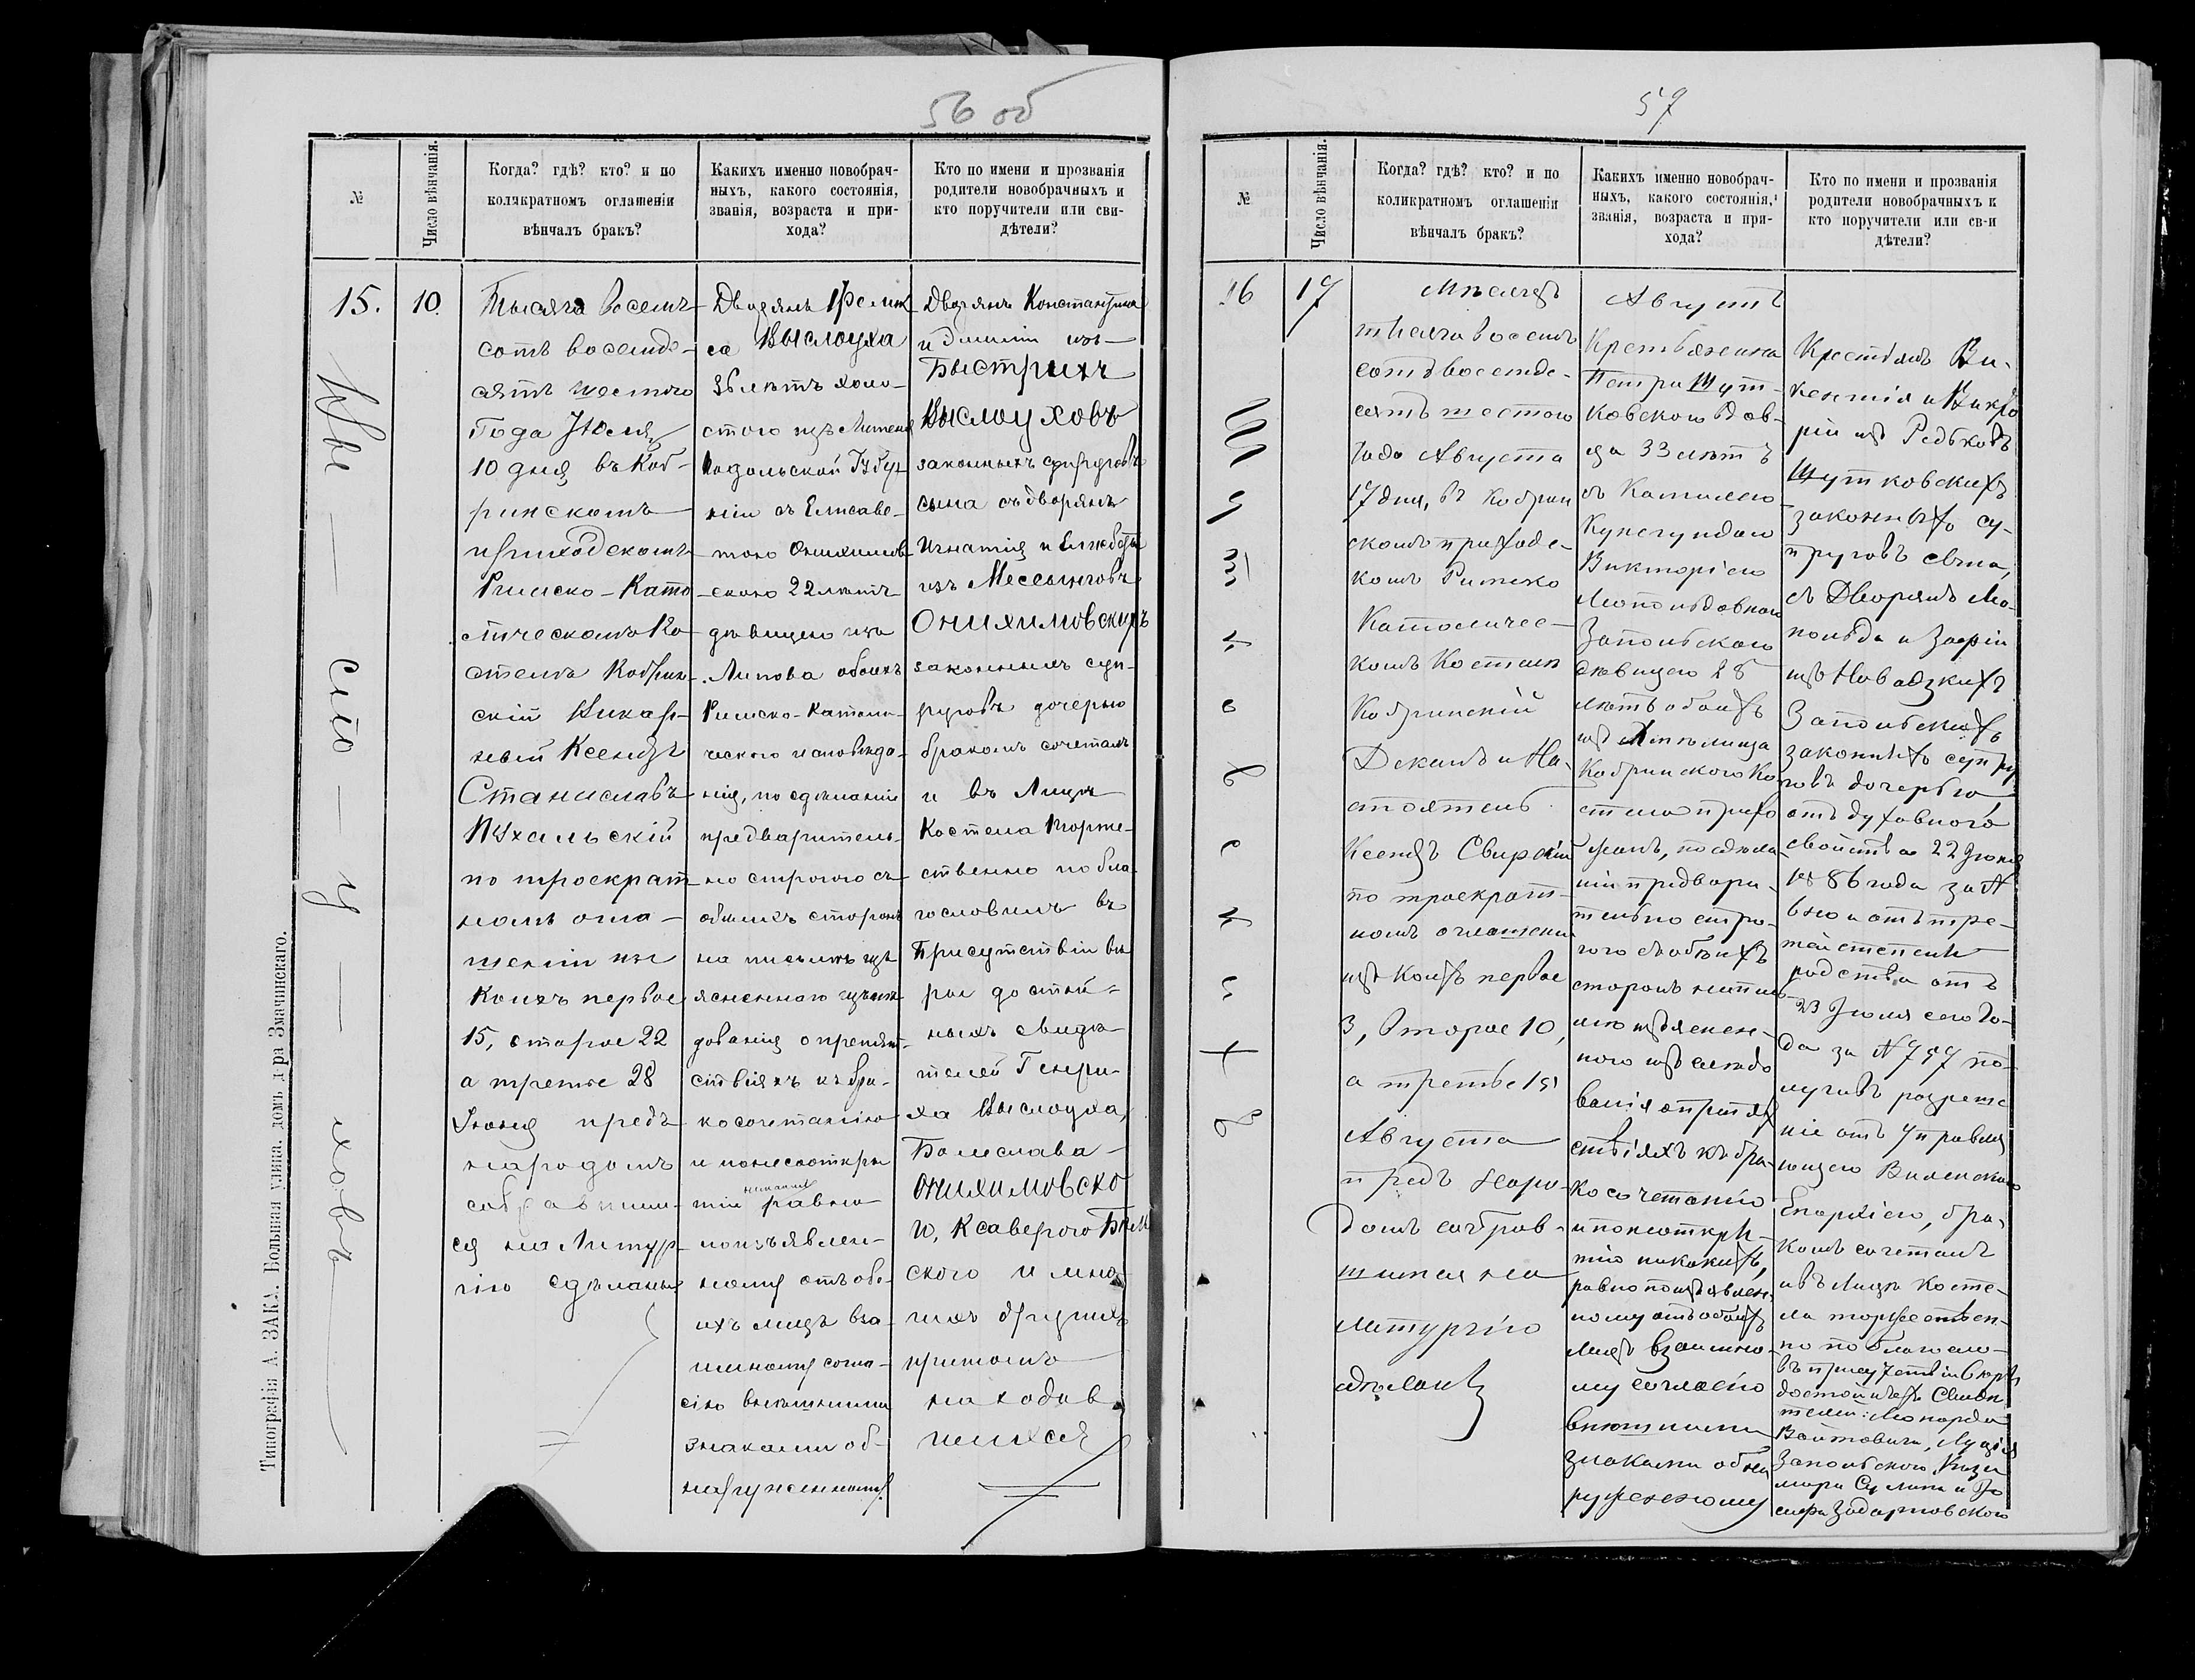 56 об
№
Число вѣнчанія.
Когда? гдѣ? кто? и по
коликратномъ оглашеніи
вѣнчалъ бракъ?
Какихъ именно новобрач-
ныхъ, какого состоянія,
званія, возраста и при-
хода?
Кто по имени и прозванія
родители новобрачныхъ и
кто поручители или сви-
дѣтели?
15.
10.
Выслоуховъ
Тысяча восемь
сотъ восемьде-
сятъ шестого
Года Іюля
10 дня въ Коб-
ринскомъ
приходскомъ
Римско-Като
лическомъ Ко
стелѣ Кобрин-
скій Викар-
ный Ксендзъ
Станиславъ
Пухальскій
по троекрат
номъ огла-
шеніи изъ
коихъ первое
15, второе 22
а третье 28
Іюня предъ
народомъ
собравшим-
ся на Литур-
гію сдѣланы
Дворянъ Феликса
Выслоуха
лѣтъ холо-
стого изъ
Подольской Губер
ніи съ Елисаве-
тою Онихимов
скою 22 лѣтъ
дѣвицею изъ
Липова обоихъ
Римско-Католи-
ческого исповѣда-
нія, по сдѣланіи
предваритель-
но строгого съ
обоихъ сторонъ
на письмѣ изъ
ясненного изслѣ
дованія о препят-
ствіяхъ къ бра-
косочетанію
и понеоткры
тіи никакихъ равно
по изъявлен-
ному отъ обо-
ихъ лицъ вза-
имному согла-
сію внѣшними
знаками об-
наруженному
Дворянъ Константина
и Эмиліи изъ
Быстрихъ
Выслоуховъ
законныхъ супруговъ
сына съ дворянъ
Игнатія и Елжбеты
изъ Месьинговъ
Онихимовскихъ
законныхъ суп-
руговъ дочерью
бракомъ сочеталъ
и въ Лицѣ
Костела торже-
ственно побла-
гословилъ въ
Присутствіи вѣ
ры достой-
ныхъ Свидѣ-
телей Генри-
ха Выслоуха,
Болеслава
Онихимовско
го, Ксаверого
ского и мно
гихъ другихъ
притомъ
находив
шихся
Типографія А. ЗАКА. Большая улица. домъ д-ра Змачинскаго.
57
№
Число вѣнчанія.
Когда? гдѣ? кто? и по
коликратномъ оглашеніи
вѣнчалъ бракъ?
Какихъ именно новобрач-
ныхъ, какого состоянія,
званія, возраста и при-
хода?
Кто по имени и прозванія
родители новобрачныхъ и
кто поручители или св-и
дѣтели?
16
17
Шутковскихъ
Мѣсяцъ
тысяча восемь
сотъ восемьде-
сятъ шестого
года Августа
17 дня, въ Кобрин
скомъ приходс-
комъ Римско
Католичес-
комъ Костелѣ
Кобринскій
Деканъ и На-
стоятель
Ксендзъ Свирскій
по троекрат-
номъ оглашеніи
изъ коихъ первое
3, Второе 10,
а третье 15
Августа
предъ Наро-
домъ собрав-
шимся на
Литургію
сдѣланы
Августъ
Крестьянина
Петра Шут-
ковского Вдов-
ца 33 лѣтъ
съ Камилею
Кунегундою
Викторіею
Леопольдовною
Запольскою
дѣвицею 28
лѣтъ обоихъ
изъ
Кобринского Ко
стела прихо
жанъ, по сдѣла
ніи предвари-
тельно стро-
гого съ обоихъ
сторонъ на пись
мѣ изъяснен-
ного изслѣдо
ванія о препят
ствіяхъ къ бра-
косочетанію
и понеоткры-
тію никакихъ,
равно по изъявлен-
ному отъ обоихъ
лицъ взаимно-
му согласію
внѣшними
знаками обна
руженному
Крестьянъ Ви-
кентія и Викто
ріи изъ Редьковъ
Шутковскихъ
законныхъ су-
пруговъ сына,
съ Дворянъ Лео-
польда и Зофіи
изъ Новодзкихъ
Запольскихъ
законныхъ супру
говъ дочерью,
отъ духовного
свойства 22 Іюня
1886 года за №
и отъ тре-
тей степени
родства отъ
23 Іюля сего Го-
да за № 797 по-
лучивъ разреше
ніе отъ Управля
ющего Виленскою
Епархіею, бра-
комъ сочеталъ
и въ Лицѣ Косте-
ла торжествен-
но поблагосло-
въ присутствіи вѣры
достойныхъ Свидѣ-
телей: Леонарда
Войтовича, Луція
Запольского, Кази
мира Сулимы и Іо
сифа Задарновского